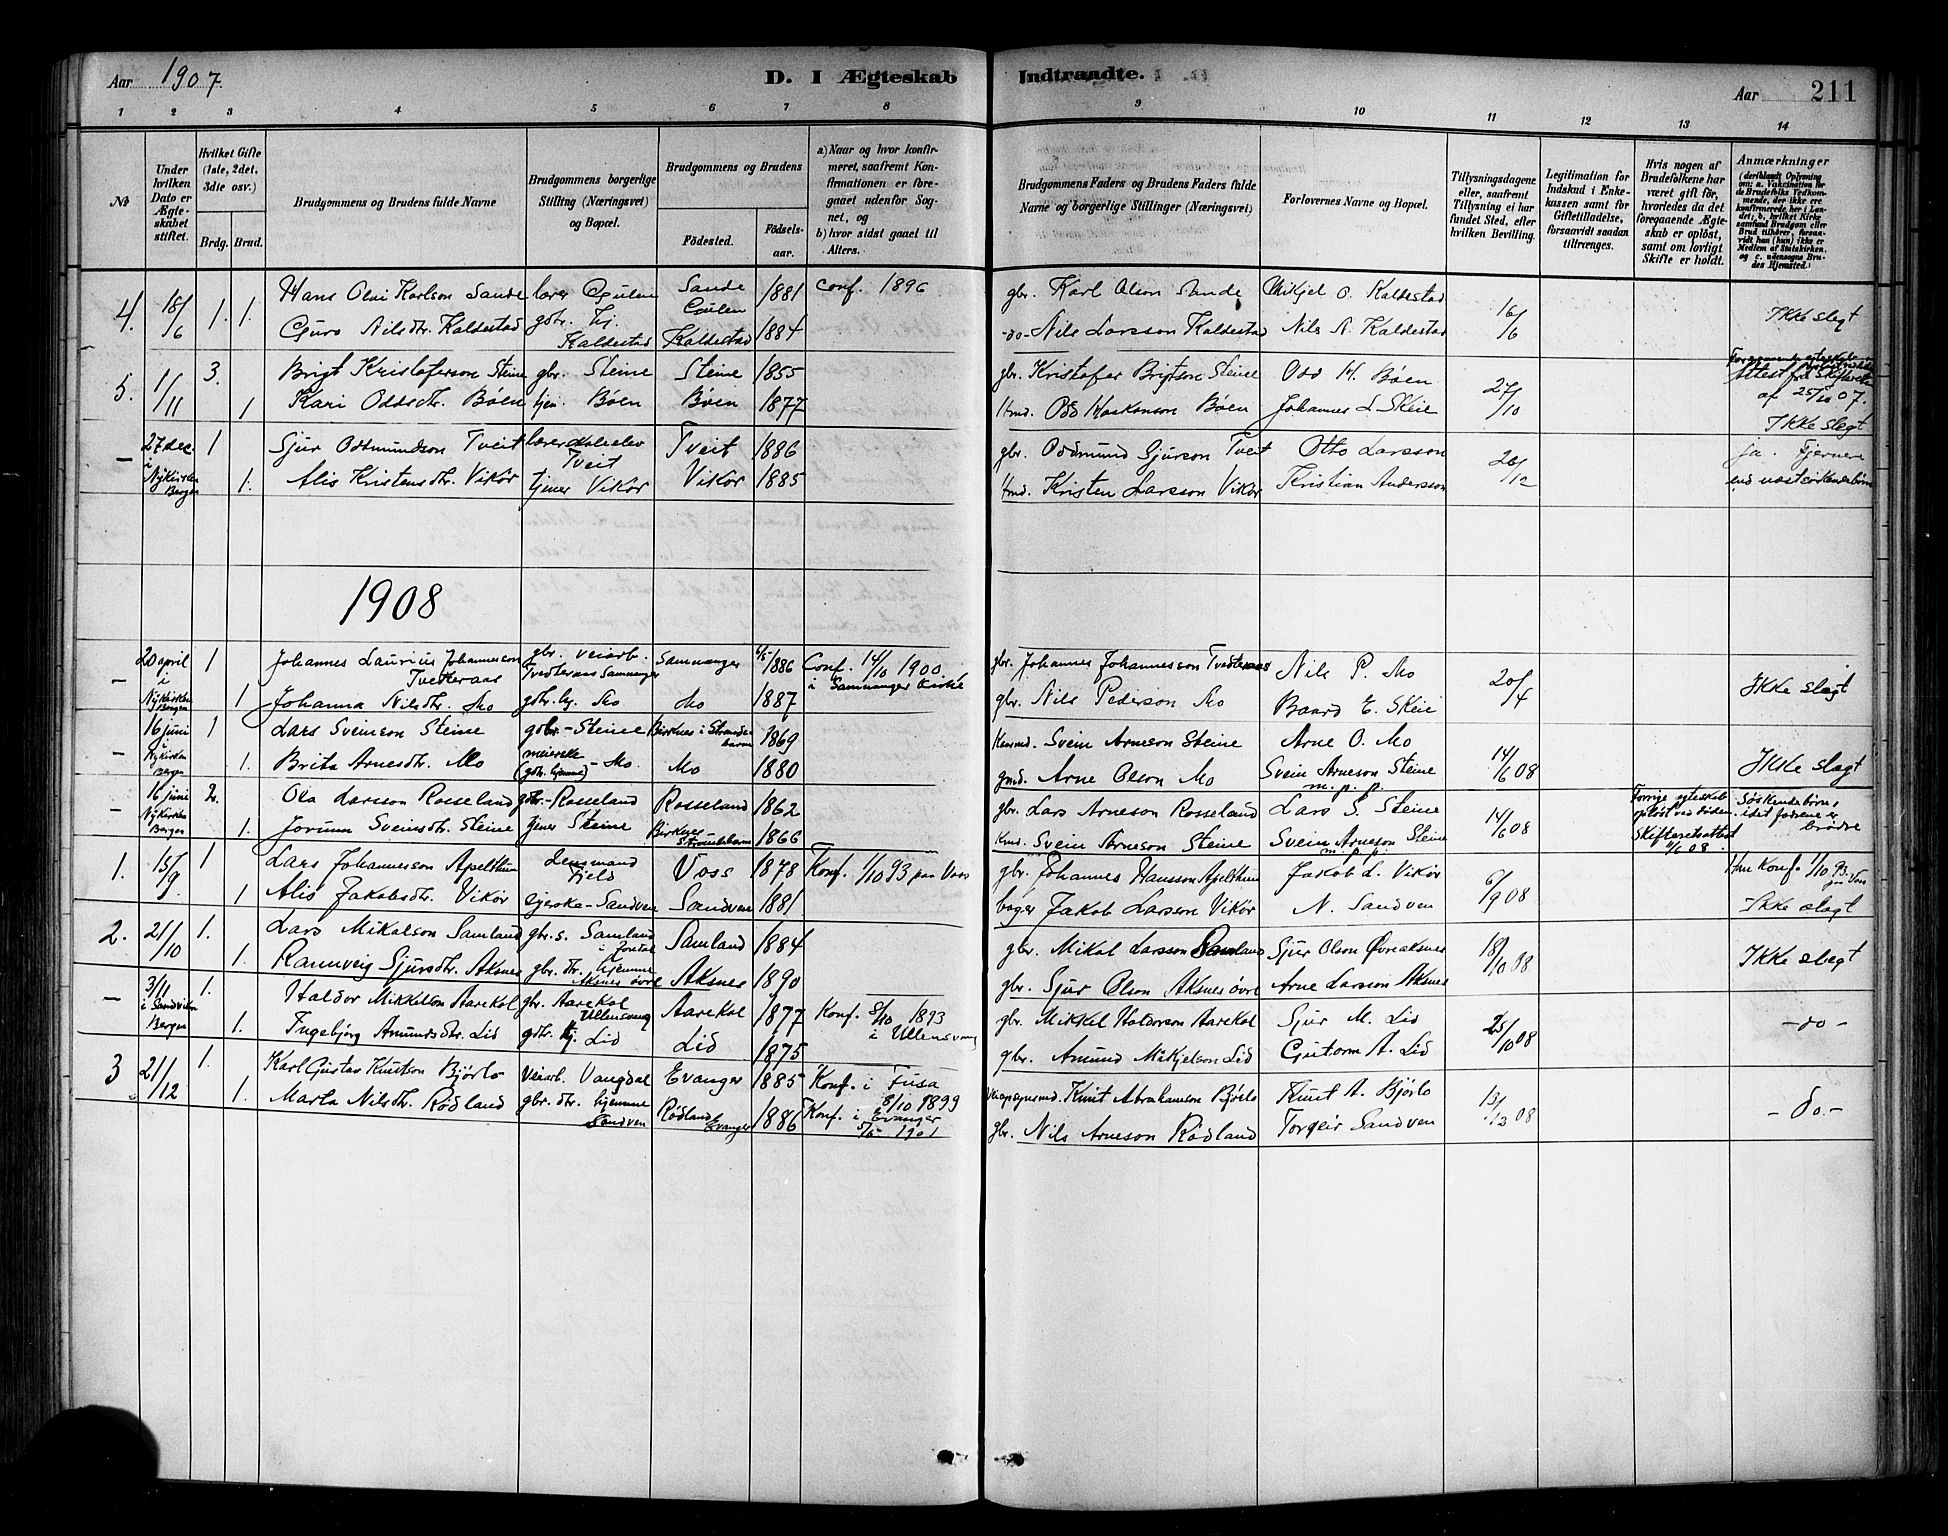 Aar 1907.
D. I Ægteskab Indtraadte.
Aar 211
1 2 3 4 5 6 7 8 9 10 11 12 13 14
No
Under hvilken Dato er Ægteskabet stiftet.
Hvilket Gifte (1ste, 2det, 3die osv.)
Brdg. Brud.
Brudgommens og Brudens fulde Navne
Brudgommens borgerlige Stilling (Næringsvei) og Bopæl.
Brudgommens og Brudens
Födested. Födsels-aar.
a) Naar og hvor konfirmeret, saafremt Konfirmationen er foregaaet udenfor Sognet, og
b) hvor sidst gaaet til Alters.
Brudgommens Faders og Brudens Faders fulde Navne og borgerlige Stillinger (Næringsvei)
Forlovernes Navne og Bopæl.
Tillysningsdagene eller, saafremt Tillysning ei har fundet Sted, efter hvilken Bevilling.
Legitimation for Indskud i Enkekassen samt for Giftetilladelse, forsaavidt saadan tiltrænges.
Hvis nogen af Brudefolkene har været gift før, hvorledes da det foregaaende Ægteskab er opløst, samt om lovligt Skifte er holdt.
Anmærkninger
(deriblandt Oplysning om: a. Vakcination for de Brudefolks Vedkommende, der ikke ere konfirmerede her i Landet; b. hvilket Kirkesamfund Brudgom eller Brud tilhører, forsaavidt han (hun) ikke er Medlem af Statskirken, og c. udensogns Brudes Hjemsted.)
4. 18/6 1. 1. Hans Olai Karlson Sande lærer Gulen Sande Gulen 1881 conf. 1896 gbr. Karl Olson Sande Mikjel O. Kaldestad 16/6 Ikke slegt
Guro Nilsdtr. Kaldestad gdtr. hj. Kaldestad Kaldestad 1884 -do- Nils Larsson Kaldestad Nils N. Kaldestad
5. 1/11 3. Brigt Kristoferson Steine gbr. Steine Steine 1855 gbr. Kristofer Brigtson Steine Odd H. Bøen 27/10 Attest fra Skifteretten af 25/10 07.
1 Kari Oddsdtr. Bøen tjen. Bøen Bøen 1877 Hmd. Odd Haakonson Bøen Johannes L. Skeie Ikke slegt
— 27 dec. i Nykirken Bergen 1 Sjur Odmundson Tveit lærerskoleelev Tveit Tveit 1886 gbr. Oddmund Sjurson Tveit Otto Larsson 26/12 ja. Fjernere
1. Alis Kristensdtr. Vikør tjener Vikør Vikør 1885 Hmd. Kristen Larsson Vikør Kristian Andersson end næstsøskendebørn
1908
— 20 april i Nykirken Bergen 1 Johannes Laurius Johannesson Tvedteraas gbr. veiarb. Tvedteraas Samnanger Samnanger 1886 Conf. 14/10 1900. i Samnanger Kirke gbr. Johannes Johannesson Tvedteraas Nils P. Mo 20/4 Ikke slegt
1 Johanna Nilsdtr. Mo gdtr. hj. Mo Mo 1887 gbr. Nils Pederson Mo Baard E. Skeie
— 16 juni i Nykirken Bergen 1 Lars Sveinson Steine gdbr. - Steine Birknes i Strandebarm 1869 Svein Arneson Steine Arne O. Mo 14/6 08 Ikke slegt
1. Brita Arnesdtr. Mo meierske (gdtr. hjemme) - Mo Mo 1880 gmd. Arne Olson Mo Svein Arneson Steine m. p. p.
— 16 juni Nykirken Bergen 2. Ola Larsson Rosseland gdbr. - Rosseland Rosseland 1862 gbr. Lars Arneson Rosseland Lars S. Steine 14/6 08 Forrige egteskab opløst ved döden. Skifteretsattest 11/6 08. Søskendebørn, idet fedrene er brödre
1. Jorunn Sveinsdtr. Steine tjener Steine Birknes Strandebarm 1866 Svein Arneson Steine Svein Arneson Steine m. p. p.
1. 15/9 1 Lars Johannesson Apelthun Lensmand Fjeld Voss 1878 Konf. 1/10 93 paa Voss gbr. Johannes Hansson Apelthun Jakob L. Vikør 6/9 08 Han Konf. 1/10 93 paa Voss
1 Alis Jakobsdtr. Vikør syerske - Sandven Sandven 1881 bager Jakob Larsson Vikør N. Sandven Ikke slegt
2. 21/10 1. Lars Mikalson Samland gbr. s. Samland Samland 1884 gbr. Mikal Larsson Samland Sjur Olson Øvreaksnes 18/10 08 Ikke slegt
1. Rannveig Sjursdtr. Aksnes gbr. dtr. hjemme Aksnes øvre Aksnes 1890 gbr. Sjur Olson Aksnes øvre Arne Larsson Aksnes
— 3/11 i Sandviken Bergen 1. Haldor Mikkelson Aarekol gbr. Aarekol Ullensvang Aarekol 1877 Konf. 8/10 1893 i Ullensvang gbr. Mikkel Haldorson Aarekol Sjur M. Lid 25/10 08 - do -
1. Ingebjørg Amundsdtr. Lid gdtr. hj. Lid Lid 1875 gbr. Amund Mikjelson Lid Gutorm A. Lid
3 21/12 1. Karl Gustav Knutson Bjørlo Veiarb. Vangdal Evanger 1885 Konf. i Fusa 8/10 1899 Veiopsynsmd. Knut Abrahamson Bjørlo Knut A. Bjørlo 13/12 08 - do. -
1. Marta Nilsdtr. Rödland gbr. dtr. hjemme Sandven Rödland Evanger 1886 Konf. i Evanger 5/5 1901 gbr. Nils Arneson Rödland Torgeir Sandven